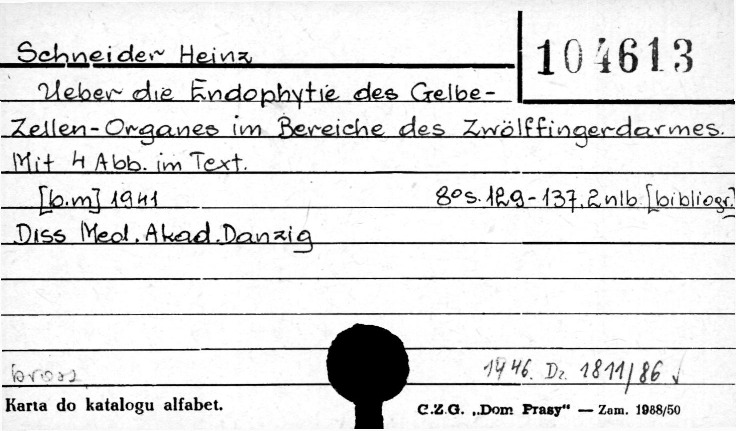 Schneider Heinz
104613
Ueber die Endophytie des Gelbe-
Zellen-Organes im Bereiche des Zwölffingerdarmes.
Mit 4 Abb. im Text.
[b.m] 1941 8° s. 129-137, 2 nlb [bibliogr.]
Diss Med. Akad. Danzig
brosz. 1946. Dz. 1811/86
Karta do katalogu alfabet. C.Z.G. „Dom Prasy" — Zam. 1988/50